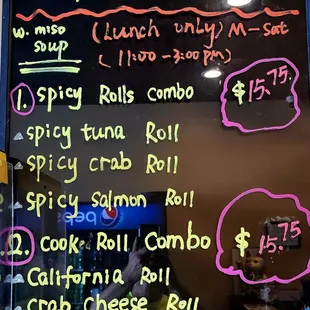 w. miso (Lunch only) M-Sat
soup (11:00-3:00pm)
1. Spicy Rolls Combo $15.75
Spicy tuna Roll
Spicy crab Roll
Spicy Salmon Roll
pepsi
2. Cook Roll Combo $15.75
California Roll
Crab Cheese Roll